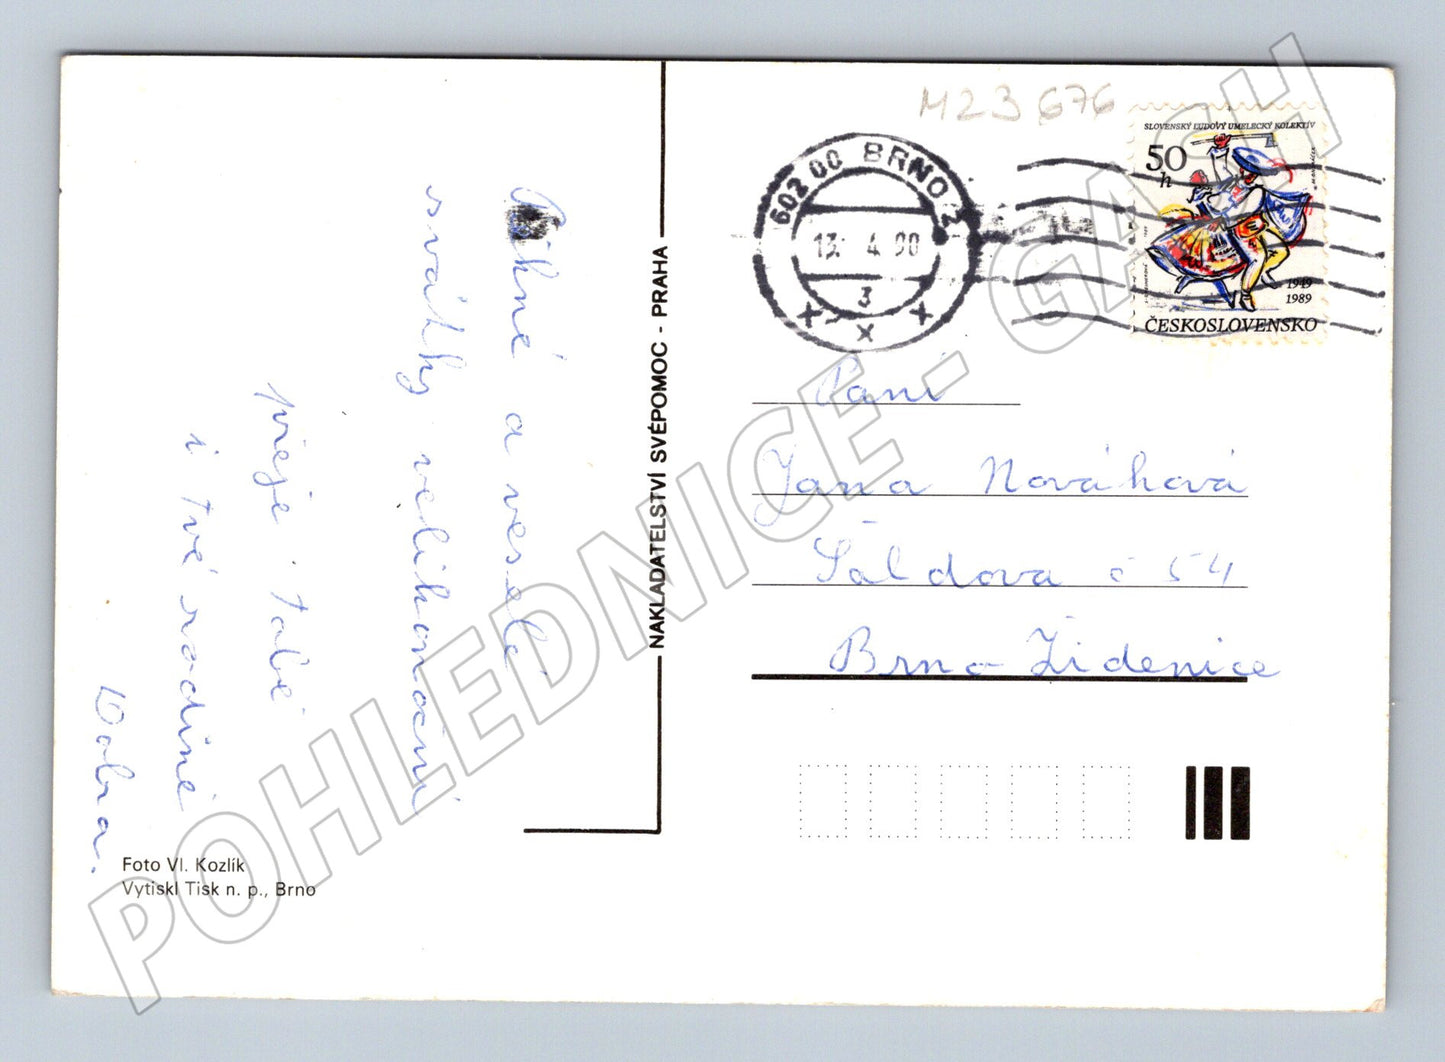 M23 676
602 00 BRNO 2
13. 4. 90
3
x x x
SLOVENSKÝ ĽUDOVÝ UMELECKÝ KOLEKTÍV
50
h
1949
1989
ČESKOSLOVENSKO
a veselé
svátky velikonoční
přeje tobě
i tvé rodině
NAKLADATELSTVÍ SVÉPOMOC - PRAHA
Paní
Jana Nováková
Šaldova č 54
Brno Židenice
Foto Vl. Kozlík
Vytiskl Tisk n. p., Brno
POHLEDNICE - GASH